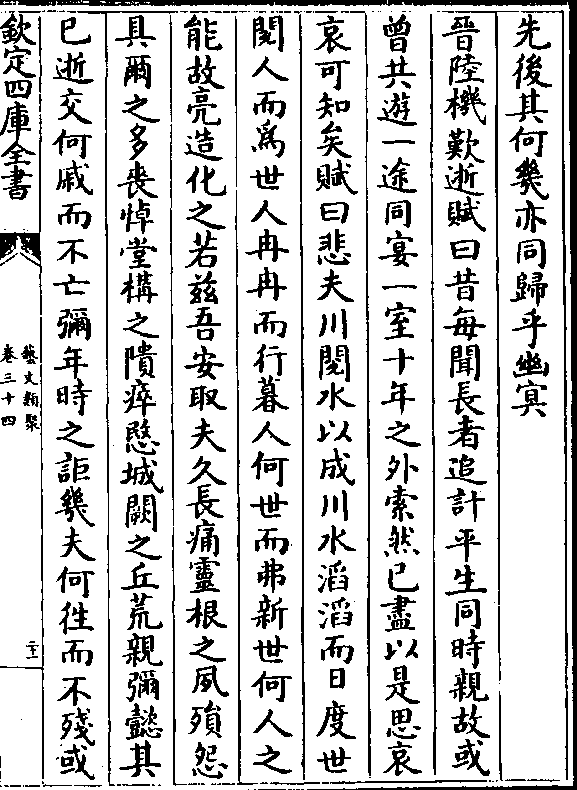 先後其何幾亦同歸乎幽冥
晉陸機歎逝賦曰昔每聞長者追計平生同時親故或
曾共遊一途同宴一室十年之外索然已盡以是思哀
哀可知矣賦曰悲夫川閱水以成川水滔滔而日度世
閱人而為世人冉冉而行暮人何世而弗新世何人之
能故亮造化之若茲吾安取夫久長痛靈根之夙殞怨
具爾之多喪悼堂構之隤瘁慜城闕之丘荒親彌懿其
已逝交何戚而不亡彌年時之詎幾夫何徃而不殘或
欽定四庫全書
藝文類聚
卷三十四
二十一